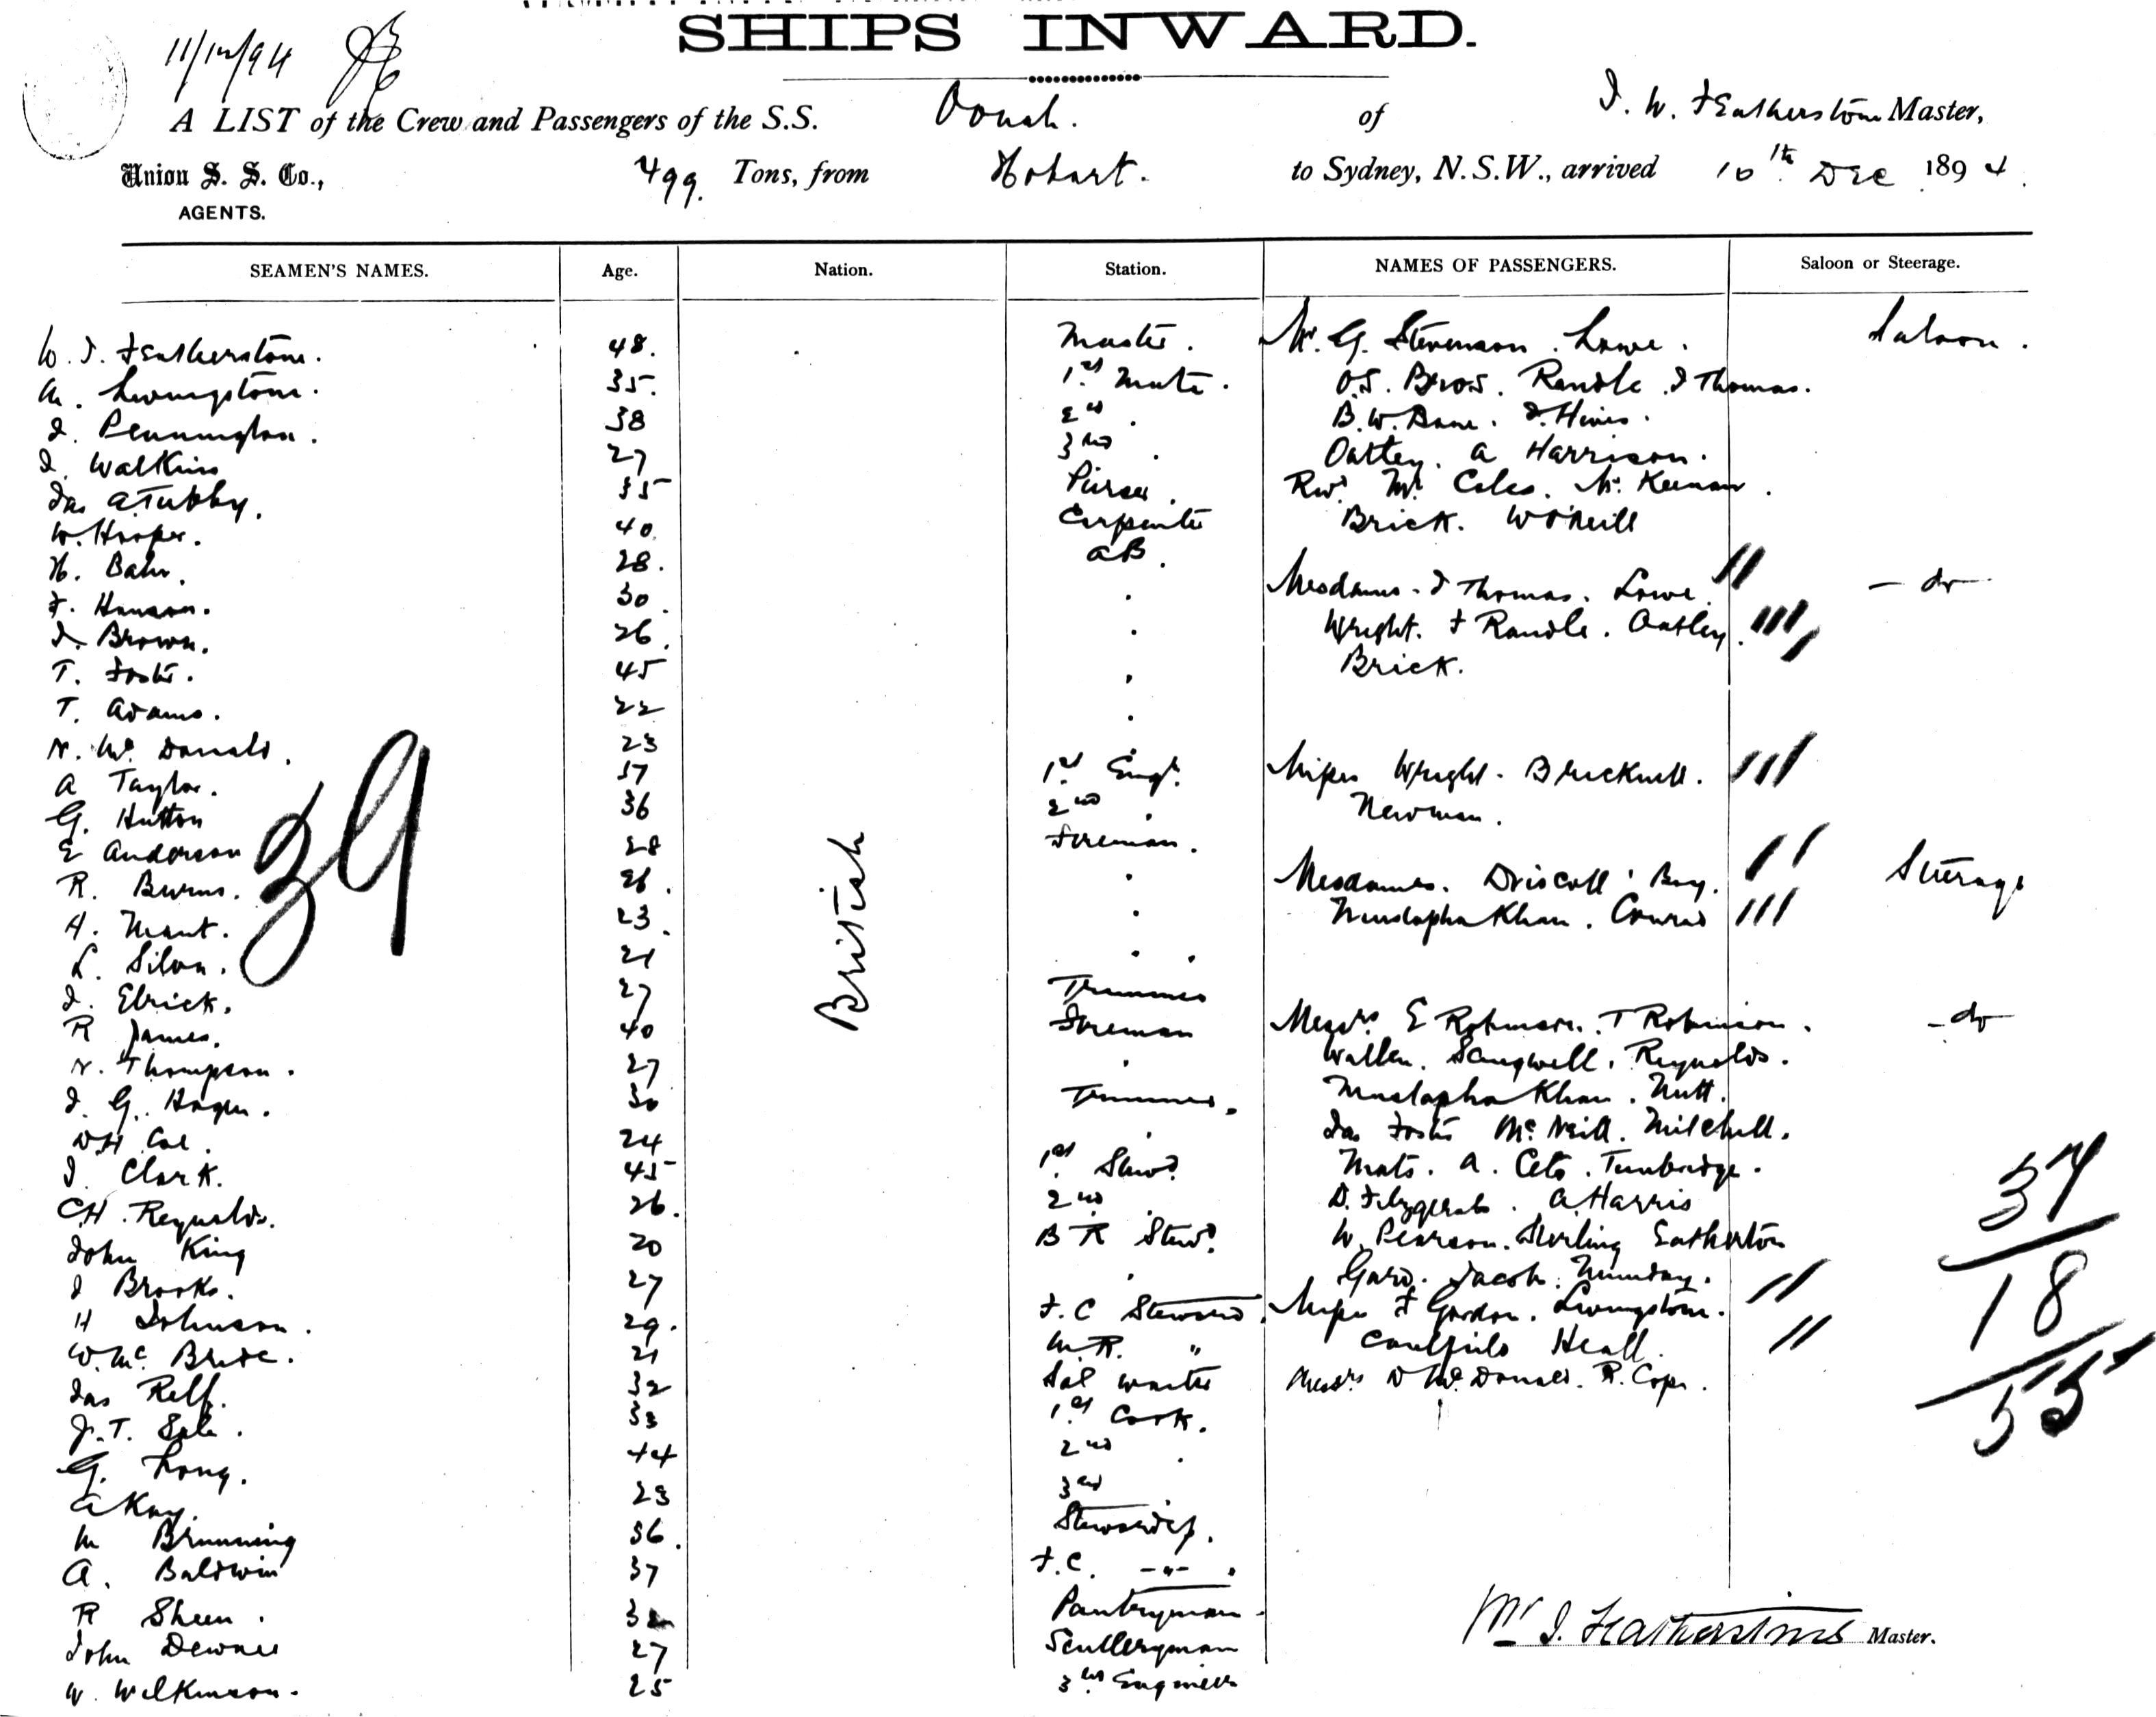 SHIPS INWARD.
11/12/94
A LIST of the Crew and Passengers of the S.S. Oonah. of J. W. Featherstone Master,
Union S. S. Co., 499. Tons, from Hobart. to Sydney, N.S.W., arrived 10th Dec 1894.
AGENTS.
SEAMEN'S NAMES. Age. Nation. Station. NAMES OF PASSENGERS. Saloon or Steerage.
W. J. Featherstone. 48. Master. Mr. G. Stevenson. Lowe. Saloon.
A. Livingstone. 35. 1st Mate. O.S. Bros. Randle. J Thomas.
J. Pennington. 38 2nd . B.W. . J. Hines.
J. Watkins 27 3rd . Oatley. A Harrison.
Jas A Tubby. 35 Purser. Revd Mr Coles. Mr. Keenan.
W. Hooper. 40. Carpenter Brick. W O'Neill
H. Bahr. 28. AB.
F. Hanson. 30. . Mesdames. J Thomas. Lowe. - do -
J. Brown. 26. . Wright. F Randle. Oatley.
T. Foster. 45 . Brick.
T. Adams. 22 .
N. McDonald. 23
A Taylor. 37 1st Engr. Misses Wright. Bricknell.
G. Hutton 36 2nd . Newman.
E Anderson 28 Fireman.
R. Burns. 26. . Mesdames. Driscoll. Bry. Steerage
H. Mant. 23. . Mustapha Khan. Conrad
L. Silva. 21 . .
J. Elrick. 27 Trimmer
R James. 40 Fireman Messrs E Robinson. T Robinson. - do
N. Thompson. 27 . Wallen. Sangwell. Reynolds.
J. G. Hagen. 30 Trimmer. Mustapha Khan. Nutt.
WH Coe. 24 . Jas Foster McNeill. Mitchell.
J Clark. 45 1st Stewd. A. Tunbridge.
CH. Reynolds. 26. 2nd . D. Fitzgerald. A Harris
John King 20 B R Stewd. W. Pearson. Sterling Eatherton
J Brooks. 27 . Gard. Jacob. Munday.
H Johnson. 29. F. C Steward. Misses F Gordon. Livingstone.
W. McBride. 21 M. R. " Caulfield Heall.
Jas Relf. 32 Sal waiter Messrs D McDonald. R. Cope.
J. T. Sale. 33 1st Cook.
G. Long. 44 2nd .
A Kay. 23 3rd .
M Brunning 36. Stewardess.
A. Baldwin 37 F. C. -"- .
R Sheen. 32 Pantryman.
John Dewnes 27 Sculleryman
W. Wilkinson. 25 3rd Engineer
British
39
37
18
55
Wm J. Featherstone Master.